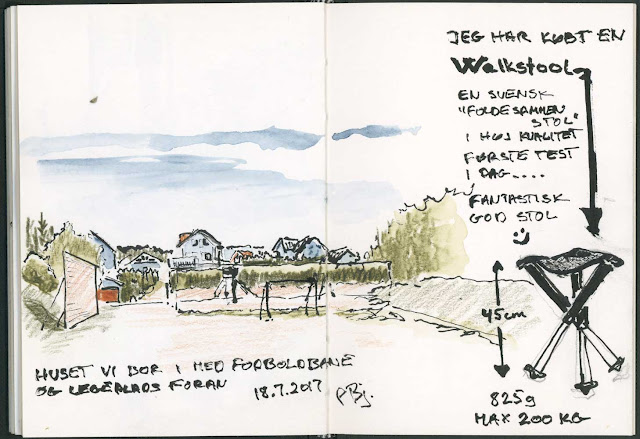 JEG HAR KØBT EN
Walkstool
EN SVENSK
"FOLDESAMMEN
STOL"
I HØJ KVALITET
FØRSTE TEST
I DAG....
FANTASTISK
GOD STOL
45cm
825g
MAX 200 KG
HUSET VI BOR I MED FODBOLDBANE
OG LEGEPLADS FORAN
18.7.2017
PBj.